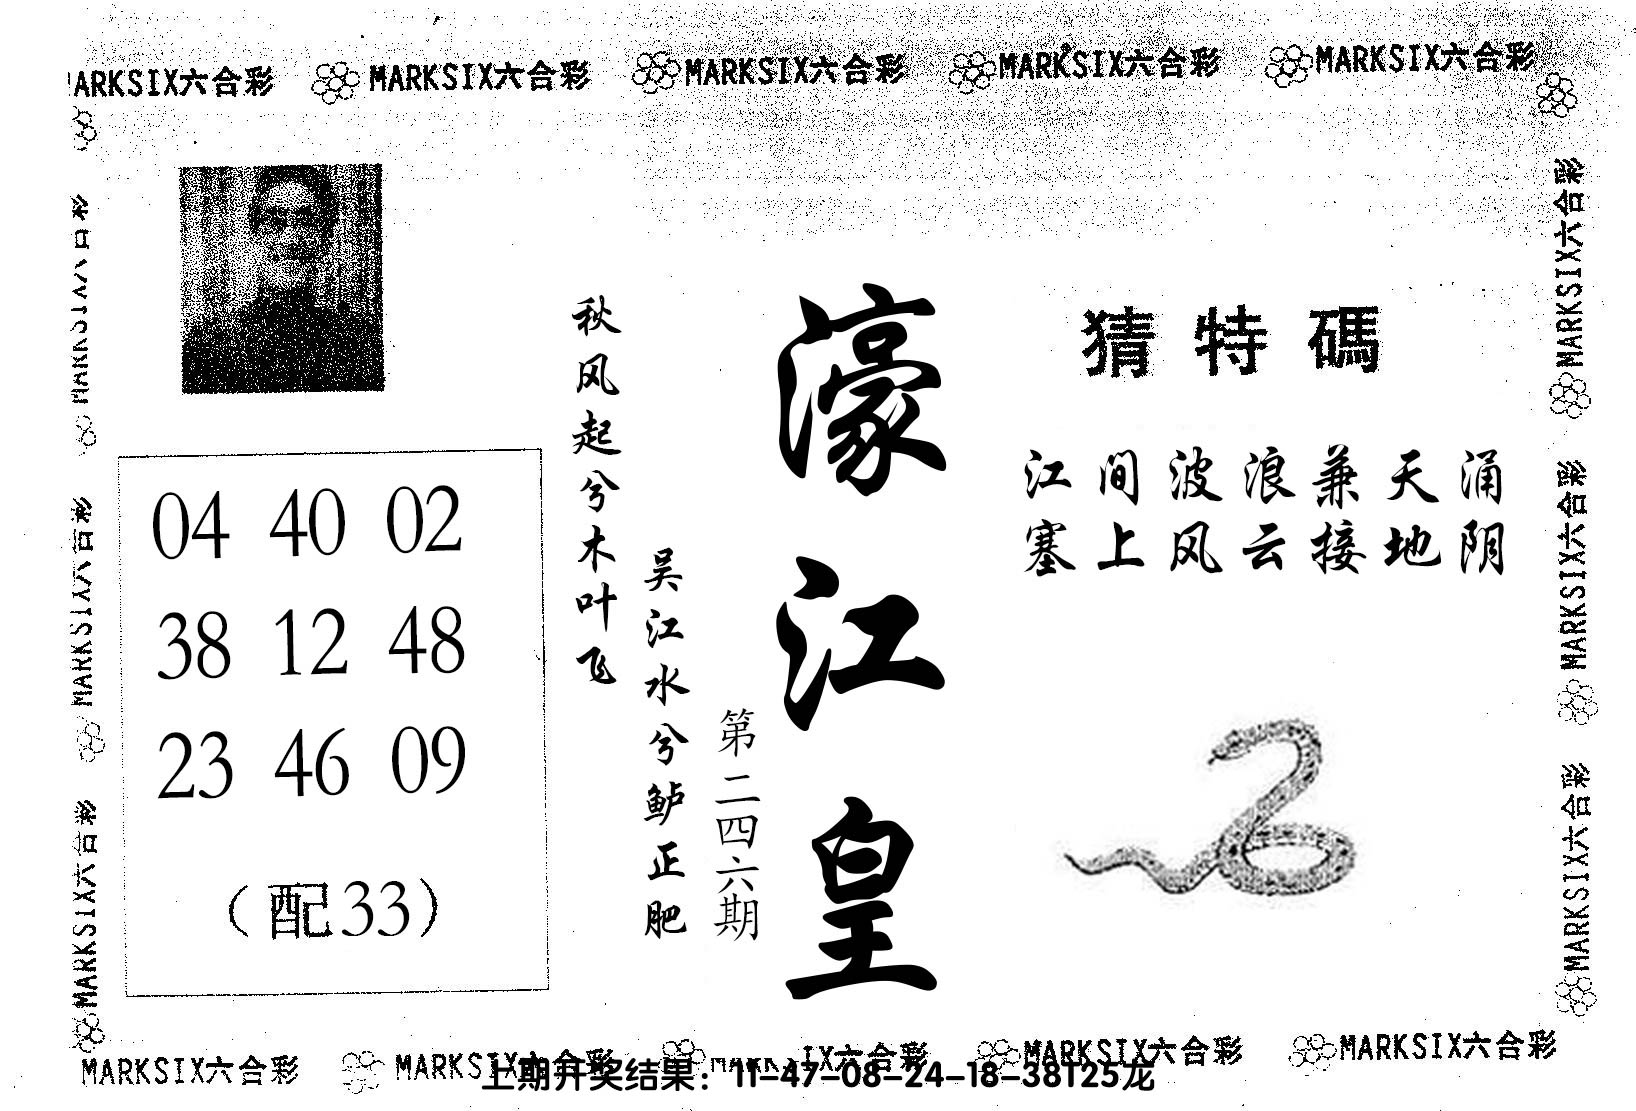 MARKSIX六合彩 MARKSIX六合彩 MARKSIX六合彩 MARKSIX六合彩
ARKSIX六合彩
猜特碼
江间波浪兼天涌
塞上风云接地阴
濠江皇
第二四六期
秋风起兮木叶飞
吴江水兮鲈正肥
04 40 02
38 12 48
23 46 09
（配33）
MARKSIX六合彩
MARKSIX六合彩
MARKSIX六合彩
MARKSIX六合彩
MARKSIX六合彩
MARKSIX六合彩
MARKSIX六合彩 MARKSIX六合彩 IX六合彩 MARKSIX六合彩 MARKSIX六合彩
上期开奖结果：11-47-08-24-18-38T25龙